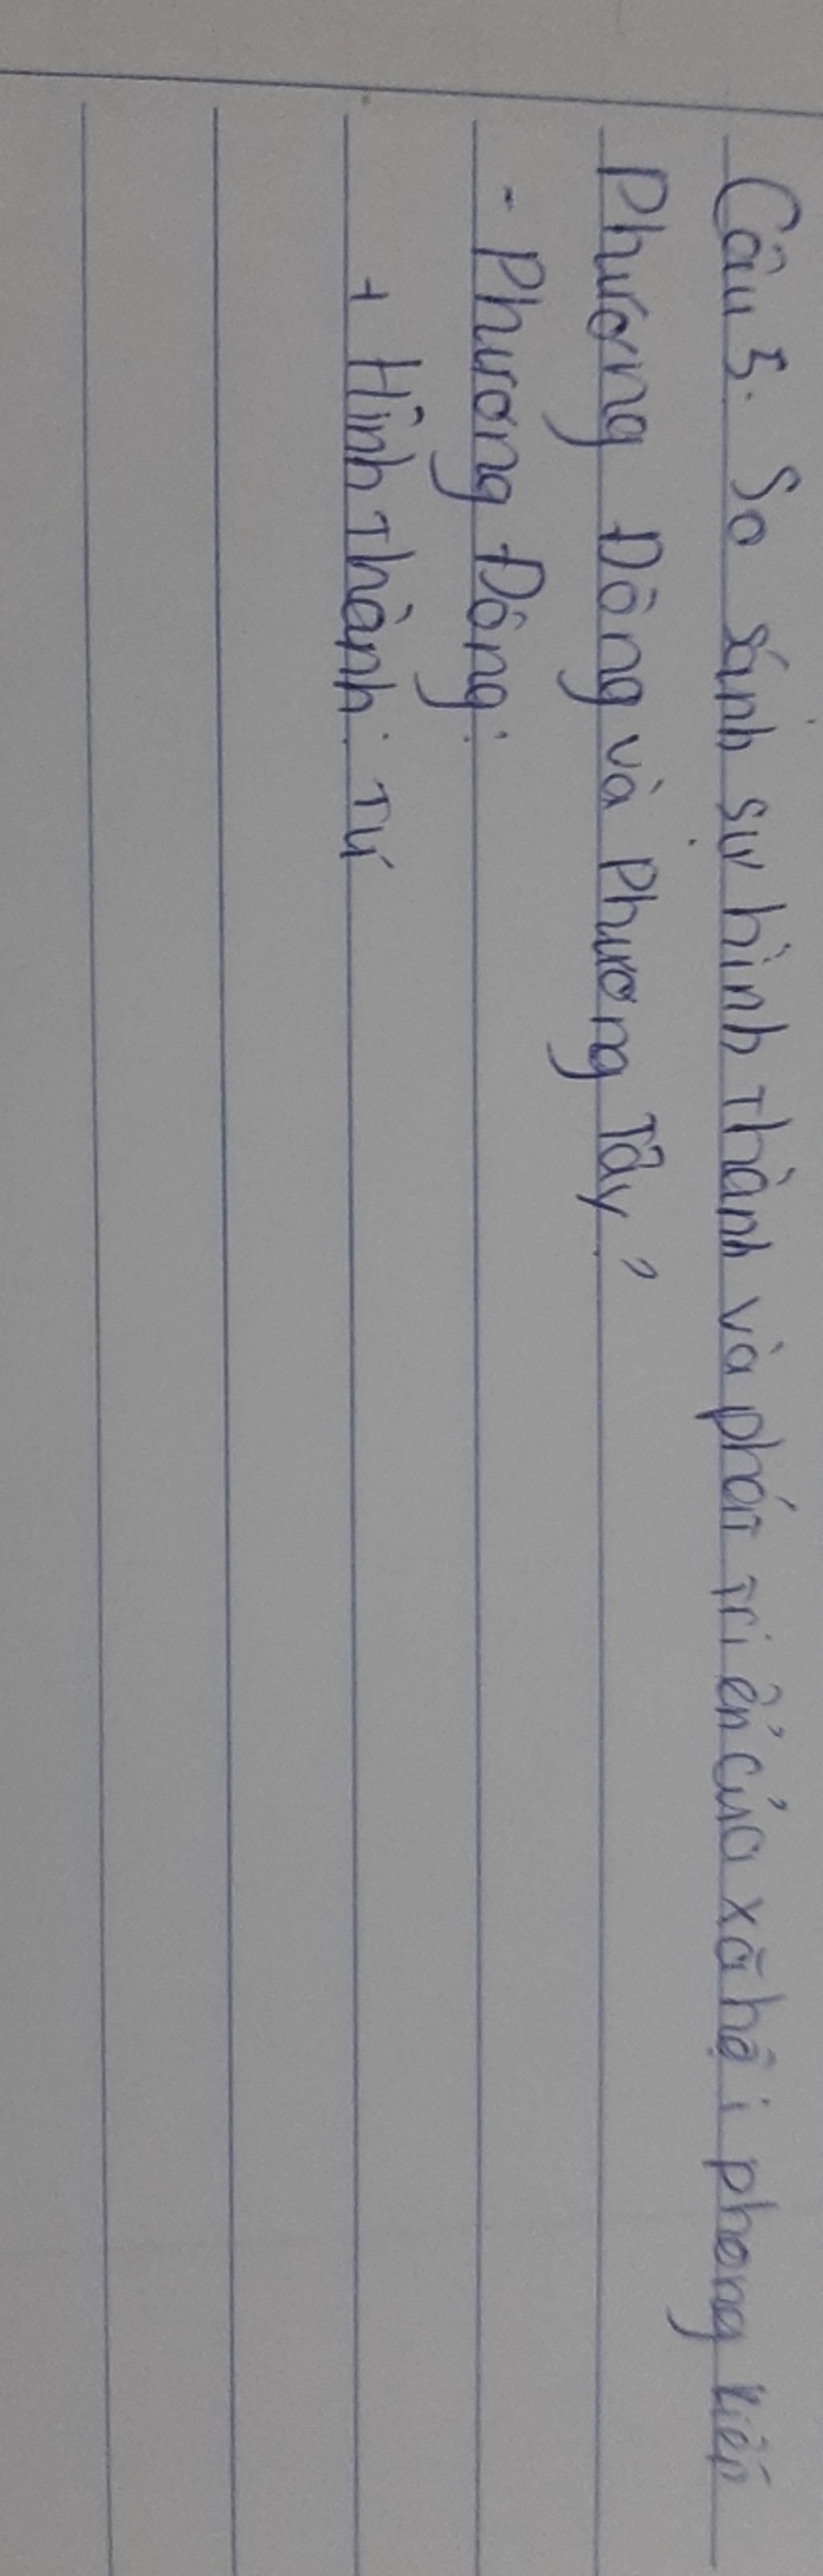 Câu 3. So sánh sự hình thành và phát triển của xã hội phong kiến
Phương Đông và Phương Tây?
- Phương Đông:
+ Hình thành: Từ